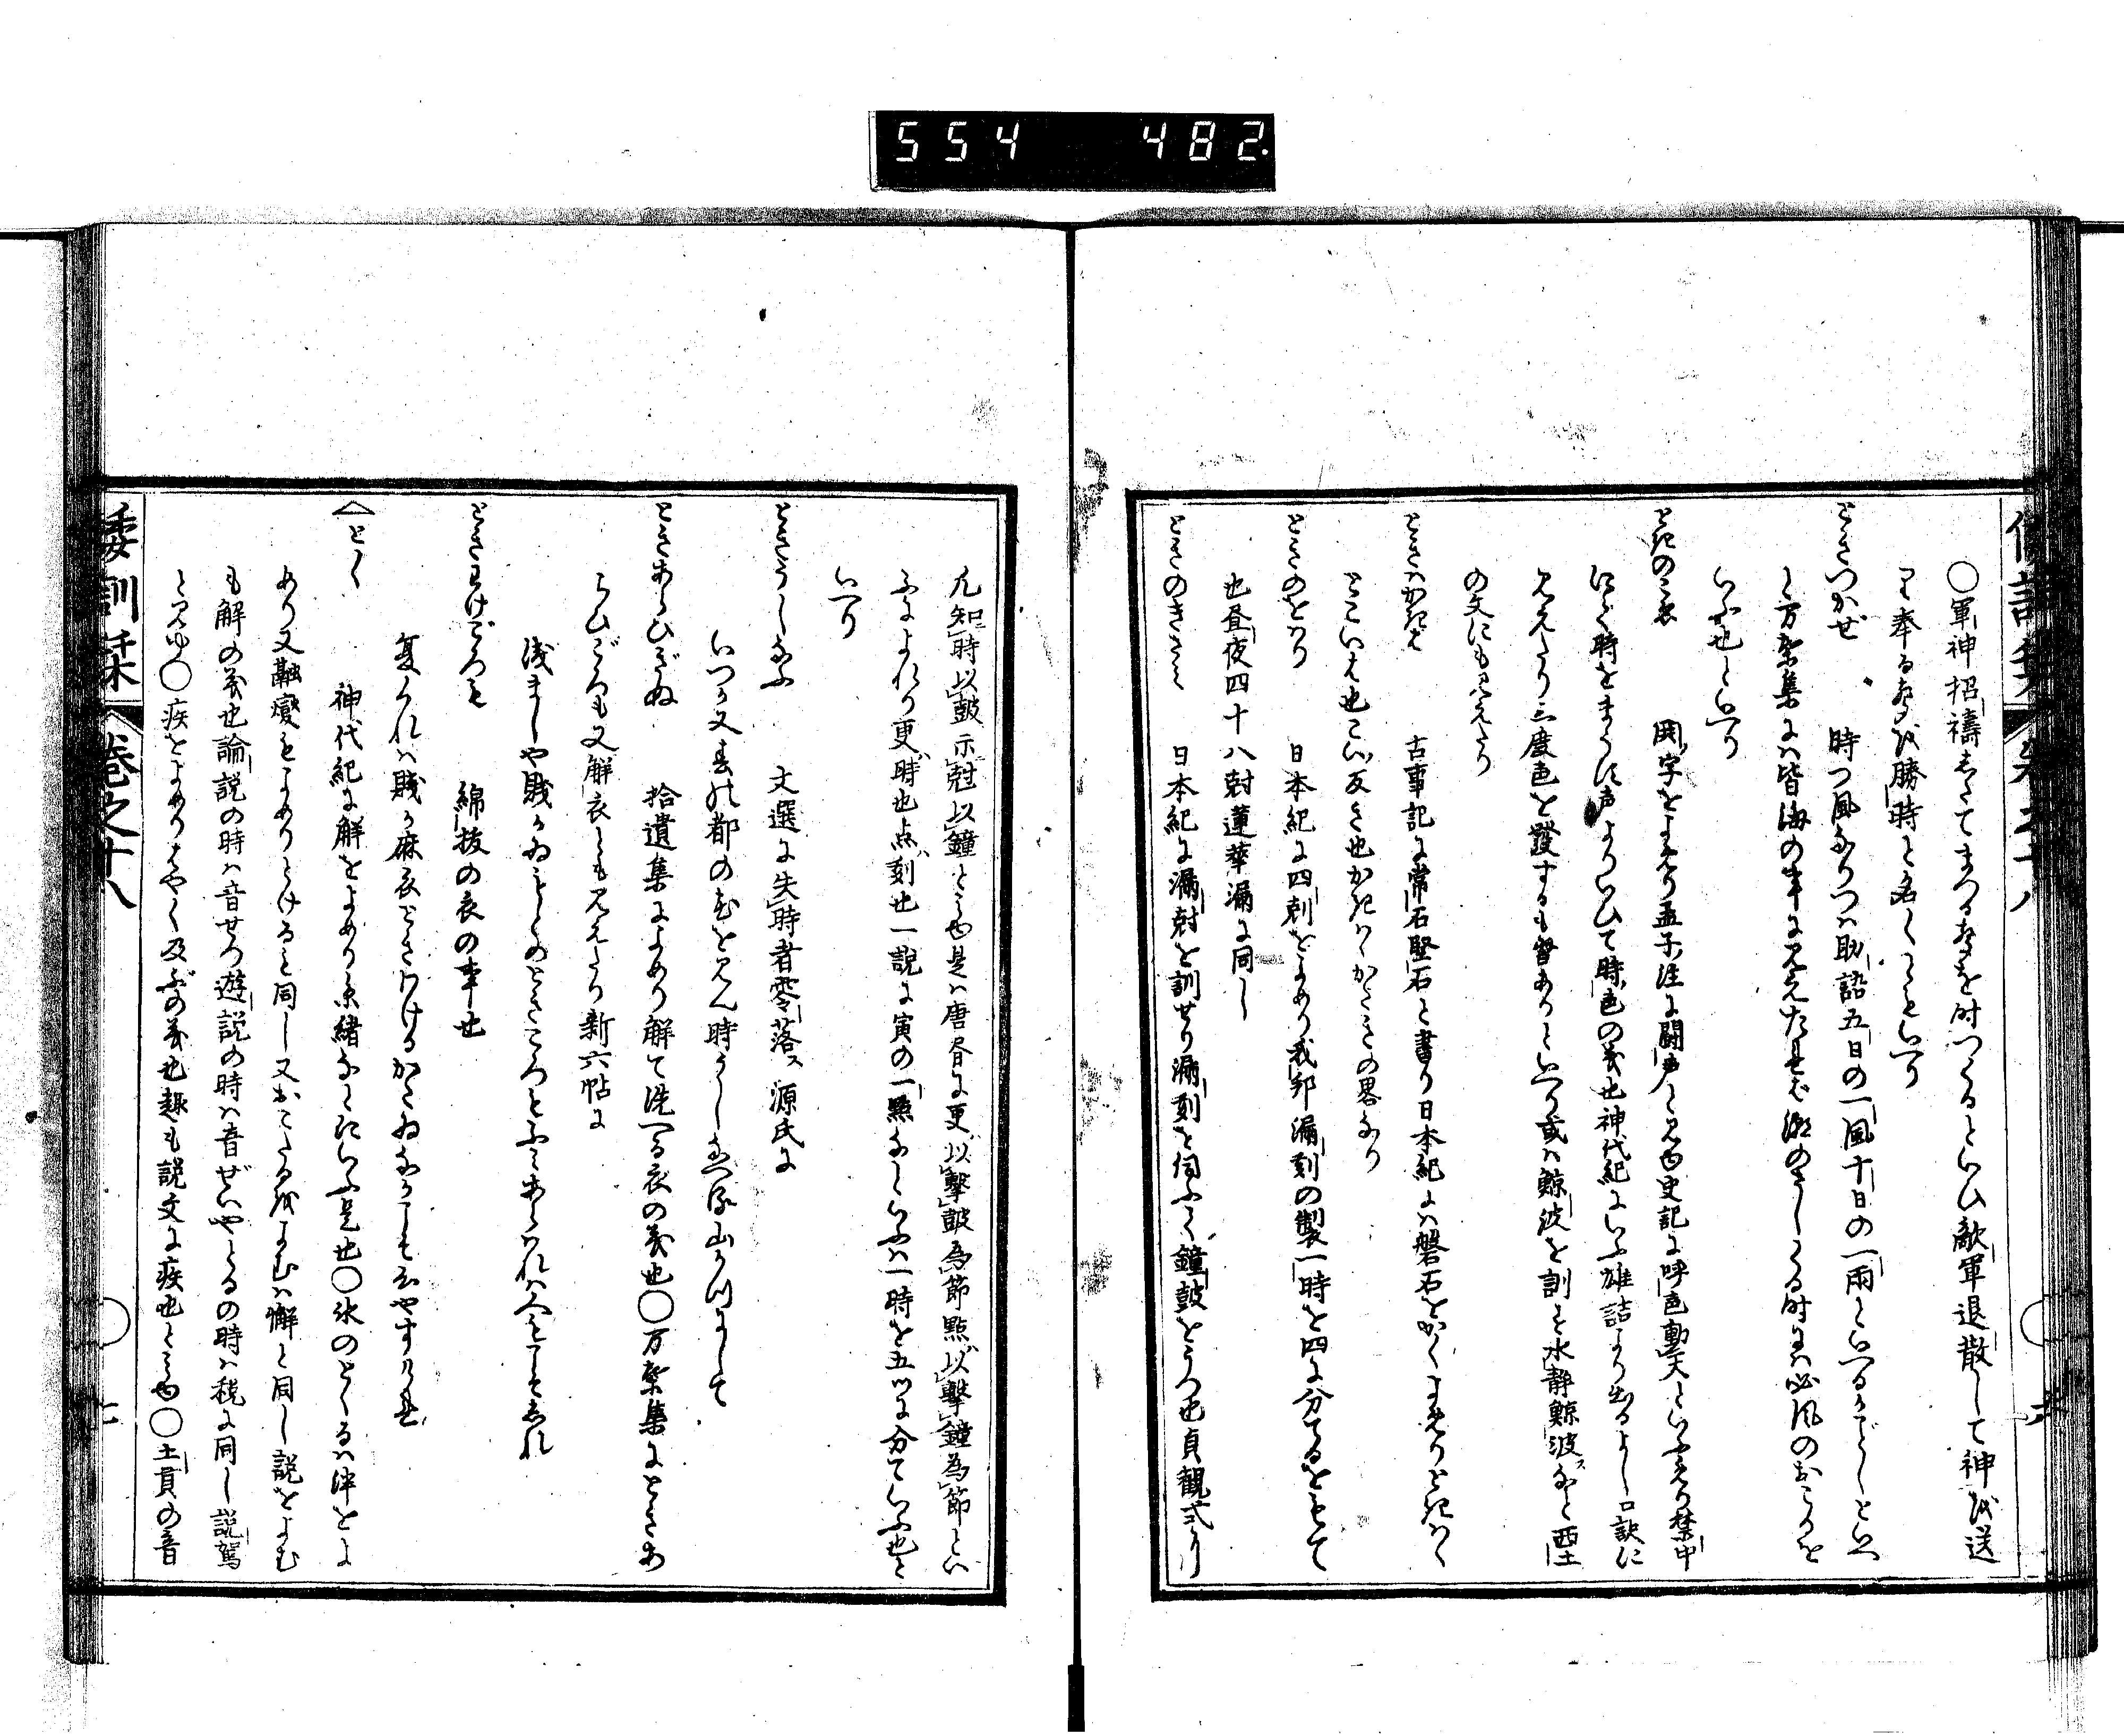 554 482.
○軍神招禱してまつる声を時つくるといひ敵軍退散して神を送
り奉る声を勝時と名くともいへり
ときつかぜ 時つ風なりつハ助語五日の一風十日の一雨といへるがごとしといへ
と万葉集にハ皆海の事に見えたせば潮のさしくる時にハ必風のおこるを
いふ也といへり
ときのこゑ 鬨字をよめり孟子注に闘声と見ゆ史記に呼色動天といふえり禁中
にて時をまうす声よりいひて時色の義也神代紀にいふ雄詰より出るよし口訣に
見えたり三度色を發するも習ありといへり或ハ鯨波を訓す水静鯨波など西土
の文にも見えたり
ときハかきは 古事記に常石堅石と書り日本紀にハ磐石をかくよめりときハく
とこいは也こい反き也かきハくかたきの畧なり
ときのをり 日本紀に四剋をよめり我邦漏刻の製一時を四に分てるをもて
也昼夜四十八尅蓮華漏に同し
ときのきざみ 日本紀に漏尅を訓せり漏刻を伺ふて鐘鼓をうつ也貞観式に
凡知時以鼓示尅以鐘と見ゆ是ハ唐昏に更以撃鼓為節點以撃鐘為節とい
ふによれり更ハ時也点ハ刻也一説に寅の一點なといふハ一時を五ツに分ていふ也と
いへり
ときうしなふ 文選に失時者零落ス源氏に
いつか又春の都の花を見ん時うしなへる山かつにして
ときあらひぎぬ 拾遺集によめり解て洗へる衣の義也○万葉集にときあ
らひごろも又解衣とも見えたり新六帖に
浅ましや賎かゐもとのときころもふみあらハれハ人もこそしれ
ときわけごろも 綿抜の衣の事也
夏くれハ賎か麻衣ときわけるかたゐなかこそ心やすけれ
〈とく 神代紀に解をよめり糸緒なとにいふ是也○氷のとくるハ泮をよ
めり又融燮をよめりとけると同し又おこたるをよむハ懈と同し説をよむ
も解の義也論説の時ハ音せつ遊説の時ハ音ぜいやとるの時ハ税に同し説駕
と見ゆ○疾をよめりはやく及ぶの義也趣も説文に疾也と見ゆ○土貢の音
倭訓栞 巻之十八 七